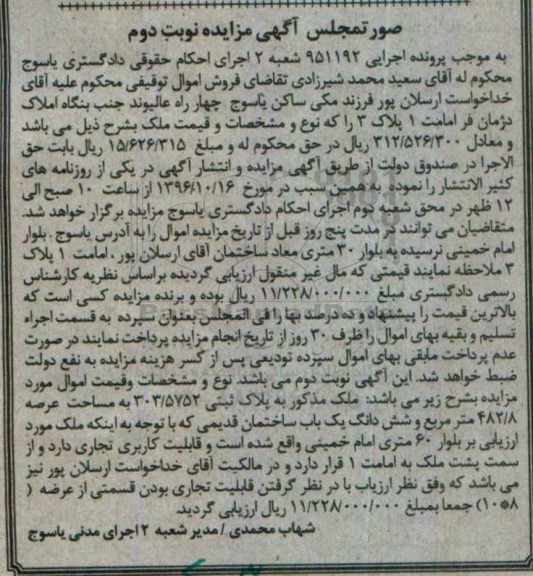 صورتمجلس آگهی مزایده نوبت دوم
به موجب پرونده اجرایی ۹۵۱۱۹۲ شعبه ۲ اجرای احکام حقوقی دادگستری یاسوج
محکوم له آقای سعید محمد شیرزادی تقاضای فروش اموال توقیفی محکوم علیه آقای
خداخواست ارسلان پور فرزند مکی ساکن یاسوج چهار راه عالیوند جنب بنگاه املاک
دژمان فر امامت ۱ پلاک ۳ را که نوع و مشخصات و قیمت ملک بشرح ذیل می باشد
و معادل ۳۱۲/۵۲۶/۳۰۰ ریال در حق محکوم له و مبلغ ۱۵/۶۲۶/۳۱۵ ریال بابت حق
الاجرا در صندوق دولت از طریق آگهی مزایده و انتشار آگهی در یکی از روزنامه های
کثیر الانتشار را نموده به همین سبب در مورخ ۱۳۹۶/۱۰/۱۶ از ساعت ۱۰ صبح الی
۱۲ ظهر در محق شعبه دوم اجرای احکام دادگستری یاسوج مزایده برگزار خواهد شد.
متقاضیان می توانند در مدت پنج روز قبل از تاریخ مزایده اموال را به آدرس یاسوج . بلوار
امام خمینی نرسیده به بلوار ۳۰ متری معاد ساختمان آقای ارسلان پور . امامت ۱ پلاک
۳ ملاحظه نمایند قیمتی که مال غیر منقول ارزیابی گردیده براساس نظریه کارشناس
رسمی دادگستری مبلغ ۱۱/۲۲۸/۰۰۰/۰۰۰ ریال بوده و برنده مزایده کسی است که
بالاترین قیمت را پیشنهاد و ده درصد بها را فی المجلس بعنوان سپرده به قسمت اجراء
تسلیم و بقیه بهای اموال را ظرف ۳۰ روز از تاریخ انجام مزایده پرداخت نمایند در صورت
عدم پرداخت مابقی بهای اموال سپرده تودیعی پس از کسر هزینه مزایده به نفع دولت
ضبط خواهد شد. این آگهی نوبت دوم می باشد. نوع و مشخصات وقیمت اموال مورد
مزایده بشرح زیر می باشد: ملک مذکور به پلاک ثبتی ۳۰۳/۵۷۵۲ به مساحت عرصه
۴۸۲/۸ متر مربع و شش دانگ یک باب ساختمان قدیمی که با توجه به اینکه ملک مورد
ارزیابی بر بلوار ۶۰ متری امام خمینی واقع شده است و قابلیت کاربری تجاری دارد و از
سمت پشت ملک به امامت ۱ قرار دارد و در مالکیت آقای خداخواست ارسلان پور نیز
می باشد که وفق نظر ارزیاب با در نظر گرفتن قابلیت تجاری بودن قسمتی از عرضه (
۸*۱۰) جمعا بمبلغ ۱۱/۲۲۸/۰۰۰/۰۰۰ ریال ارزیابی گردید.
شهاب محمدی / مدیر شعبه ۲ اجرای مدنی یاسوج